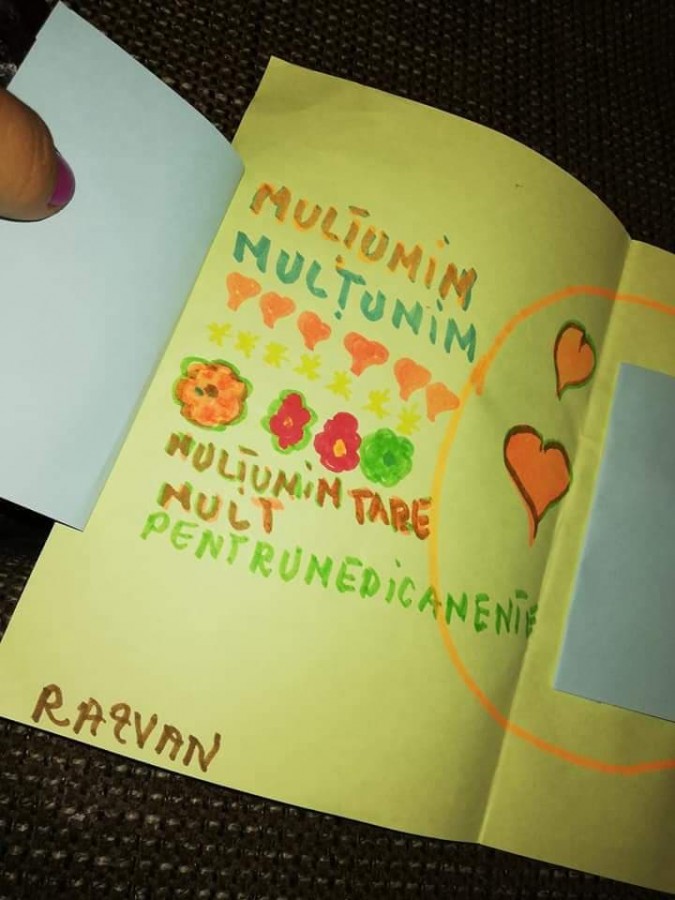 MULTUMIM
MULȚUNIM
NULTUNIM TARE
MULT
PENTRUMEDICANENTE
RAZVAN